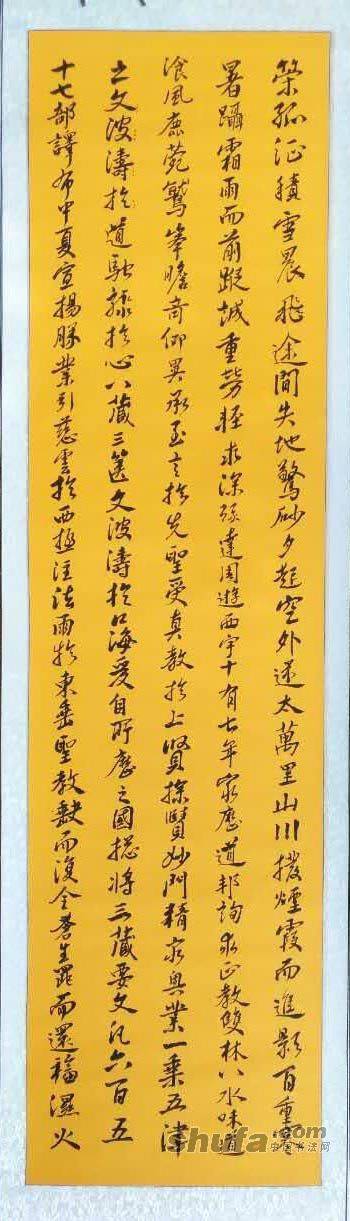 策孤征積雪晨飛途間失地驚砂夕起空外迷太萬里山川撥煙霞而進影百重寒
暑躡霜雨而前蹤誠重勞輕求深欲達周遊西宇十有七年窮歷道邦詢求正教雙林八水味道
飡風鹿菀鷲峯瞻奇仰異承至言於先聖受真教於上賢探賾妙門精窮奧業一乘五津
之文波濤於道馳驟於心八藏三篋文波濤於口海爰自所歷之國總將三藏要文凡六百五
十七部譯布中夏宣揚勝業引慈雲於西極注法雨於東垂聖教缺而復全蒼生罪而還福濕火
shufa.com
中国书法网